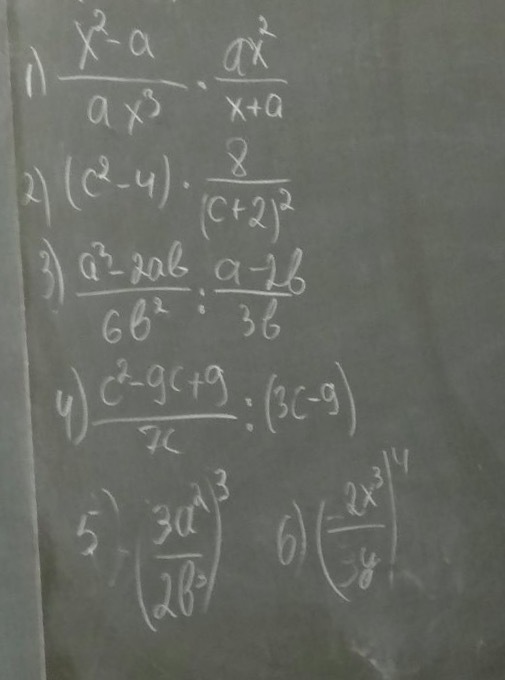 1) \frac{x^2-a}{ax^3} \cdot \frac{ax^2}{x+a}
2) (c^2-4) \cdot \frac{8}{(c+2)^2}
3) \frac{a^3-2ab}{6b^2} : \frac{a-2b}{3b}
4) \frac{c^2-9c+9}{7c} : (3c-9)
5) -\left(\frac{3a^2}{2b^3}\right)^3 6) \left(\frac{-2x^3}{3y}\right)^4